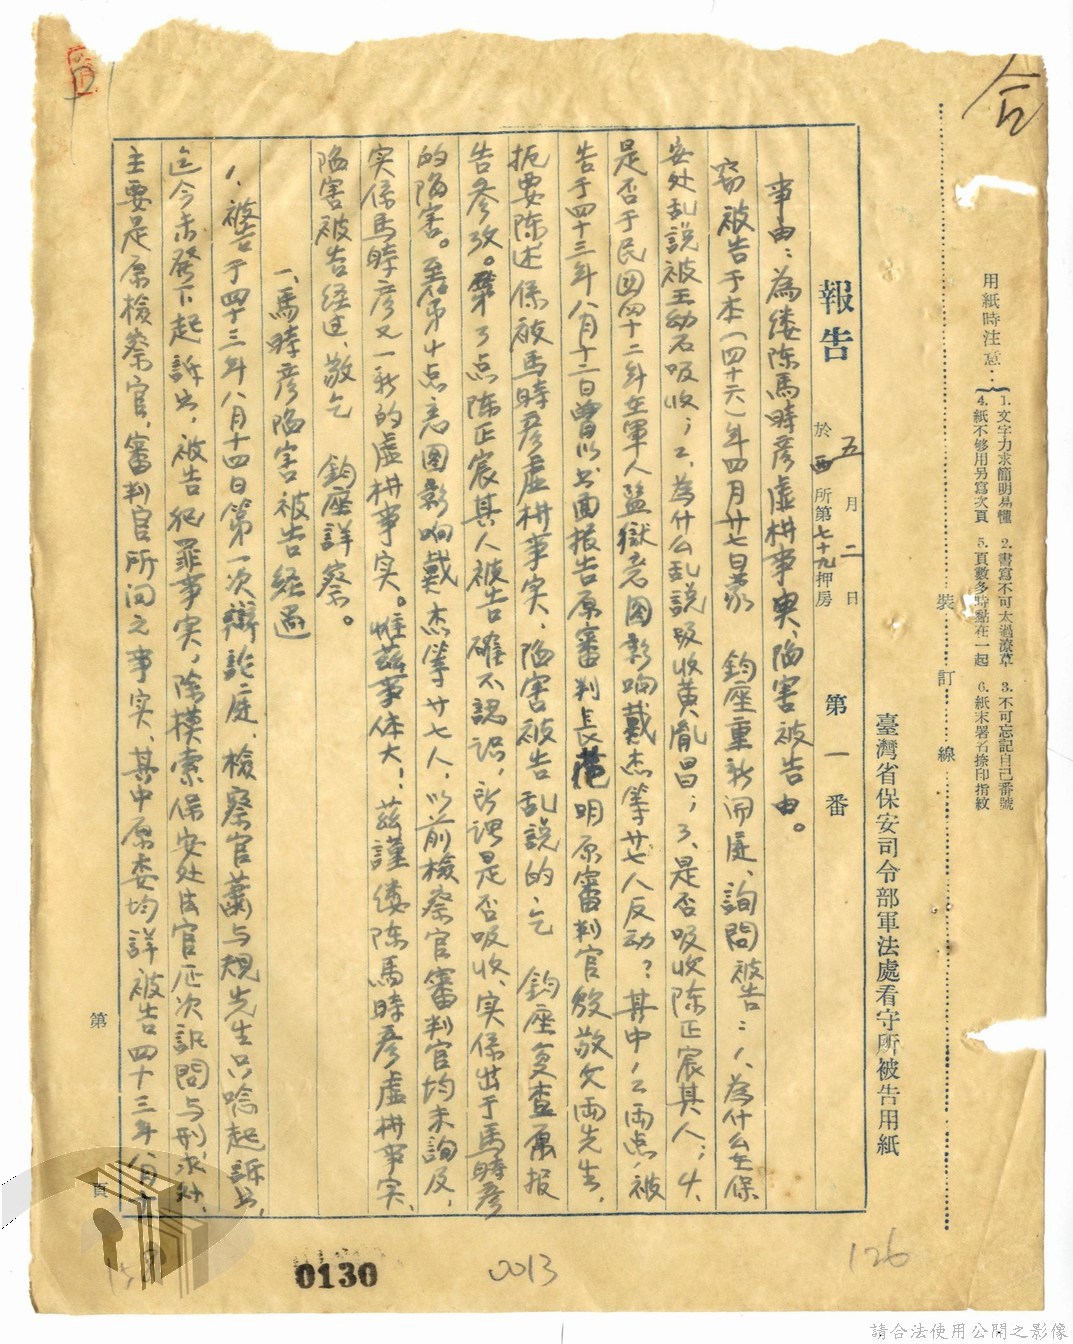 合
用紙時注意：
1. 文字力求簡明易懂 2. 書寫不可太過潦草 3. 不可忘記自己番號
4. 紙不够用另寫次頁 5. 頁數多時點在一起 6. 紙末署名捺印指紋
裝訂線
臺灣省保安司令部軍法處看守所被告用紙
報告 五月二日 於西所第七十九押房 第一番
事由：為缕陈馬時彦虚构事实、陷害被告由。
窃被告于本(四十六)年四月廿七日蒙 鈞座重新开庭、詢問被告：1、為什么在保
安处乱說被王动石吸收；2、為什么乱説吸收黄胤昌；3、是否吸收陈正宸其人；4、
是否于民国四十二年在軍人監獄意图影响戴杰等廿七人反动？其中1、2两点、被
告于四十三年八月十二日曾以书面报告原審判長范明原審判官殷敬文両先生，
扼要陈述係被馬時彦虚构事实、陷害被告乱説的、乞 鈞座复查原报
告参攷。第3点陈正宸其人被告確不認识，所謂是否吸收、实係出于馬時彦
的陷害。至第4点意图影响戴杰等廿七人，以前檢察官審判官均未詢及，
实係馬時彦又一新的虚构事实。惟茲事体大，茲謹缕陈馬時彦虚构事实、
陷害被告経过、敬乞 鈞座詳察。
一、馬時彦陷害被告経過
1、被告于四十三年八月十四日第一次辯論庭、檢察官蕭与規先生只唸起訴书，
迄今未發下起訴书，被告犯罪事实，除模索保安处法官历次訊問与刑求外，
主要是原檢察官，審判官所问之事实，其中原委均詳被告四十三年八月十
第 頁
0130
0013
126
請合法使用公開之影像